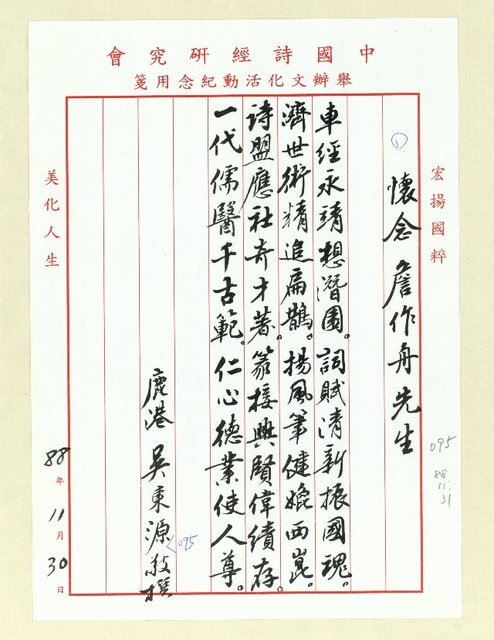 中國詩經研究會
舉辦文化活動紀念用箋
宏揚國粹
①
懷念詹作舟先生
車經永靖想潛園。詞賦清新振國魂。
濟世術精追扁鵲。揚風筆健媲西崑。
詩盟應社奇才著。篆接興賢偉績存。
一代儒醫千古範。仁心德業使人尊。
鹿港 吳東源敬撰
美化人生
88年11月30日
095
88.
11.
31
095